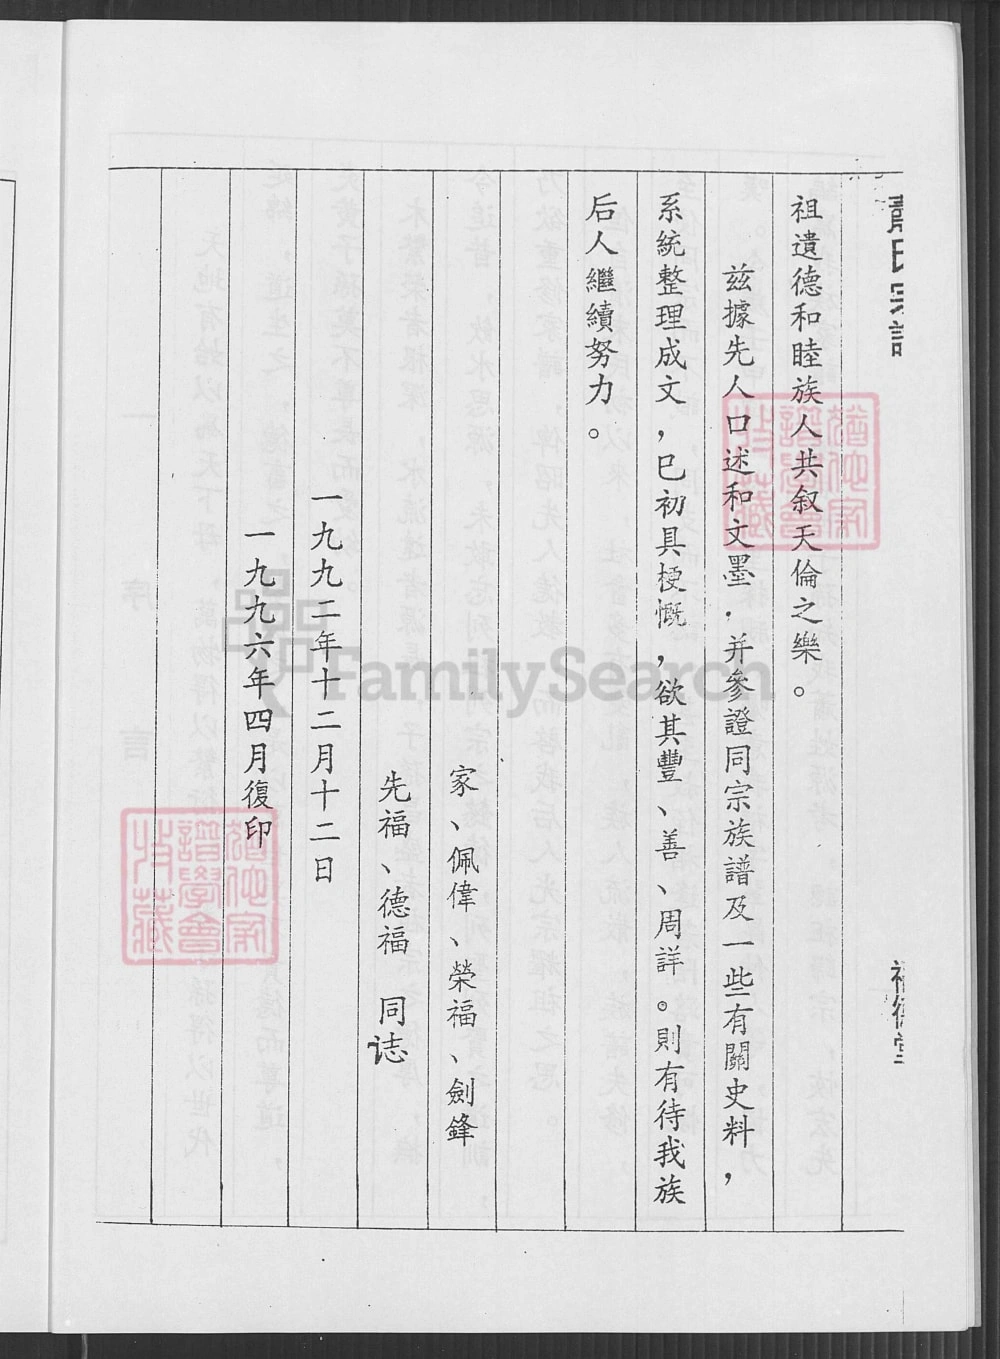 祖遺德和睦族人共叙天倫之樂。
兹據先人口述和文墨．并參證同宗族譜及一些有關史料，
系統整理成文，已初具梗慨，欲其豐、善、周詳。則有待我族
后人繼續努力。
家、佩偉、榮福、劍鋒
先福、德福 同誌
一九九二年十二月十二日
一九九六年四月復印
FamilySearch